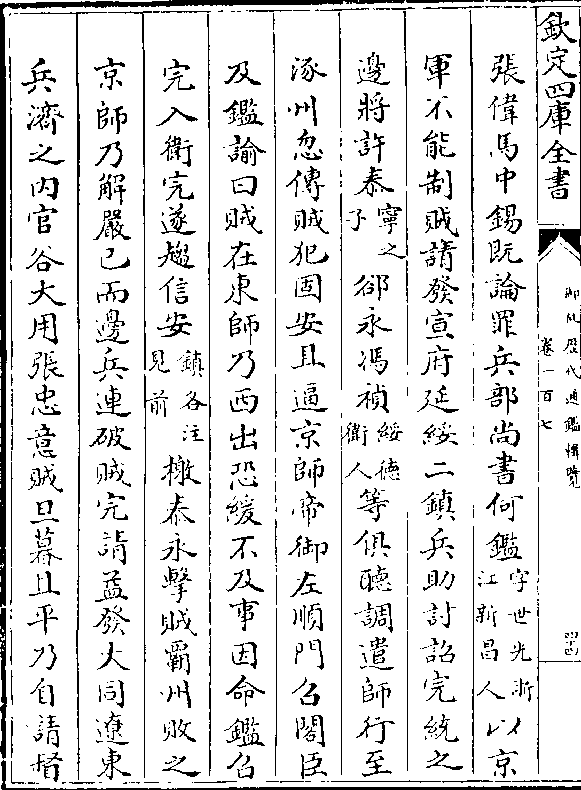 欽定四庫全書
御批歷代通鑑輯覽
卷一百七
張偉馬中錫既論罪兵部尚書何鑑字世光浙江新昌人以京
軍不能制賊請發宣府延綏二鎮兵助討詔完統之
邊將許泰寧之子郤永馮禎綏德衛人等俱聽調遣師行至
涿州忽傳賊犯固安且逼京師帝御左順門召閣臣
及鑑諭曰賊在東師乃西出恐緩不及事因命鑑召
完入衛完遂趨信安鎮名注見前檄泰永擊賊霸州敗之
京師乃解嚴已而邊兵連破賊完請益發大同遼東
兵濟之内官谷大用張忠意賊旦暮且平乃自請督